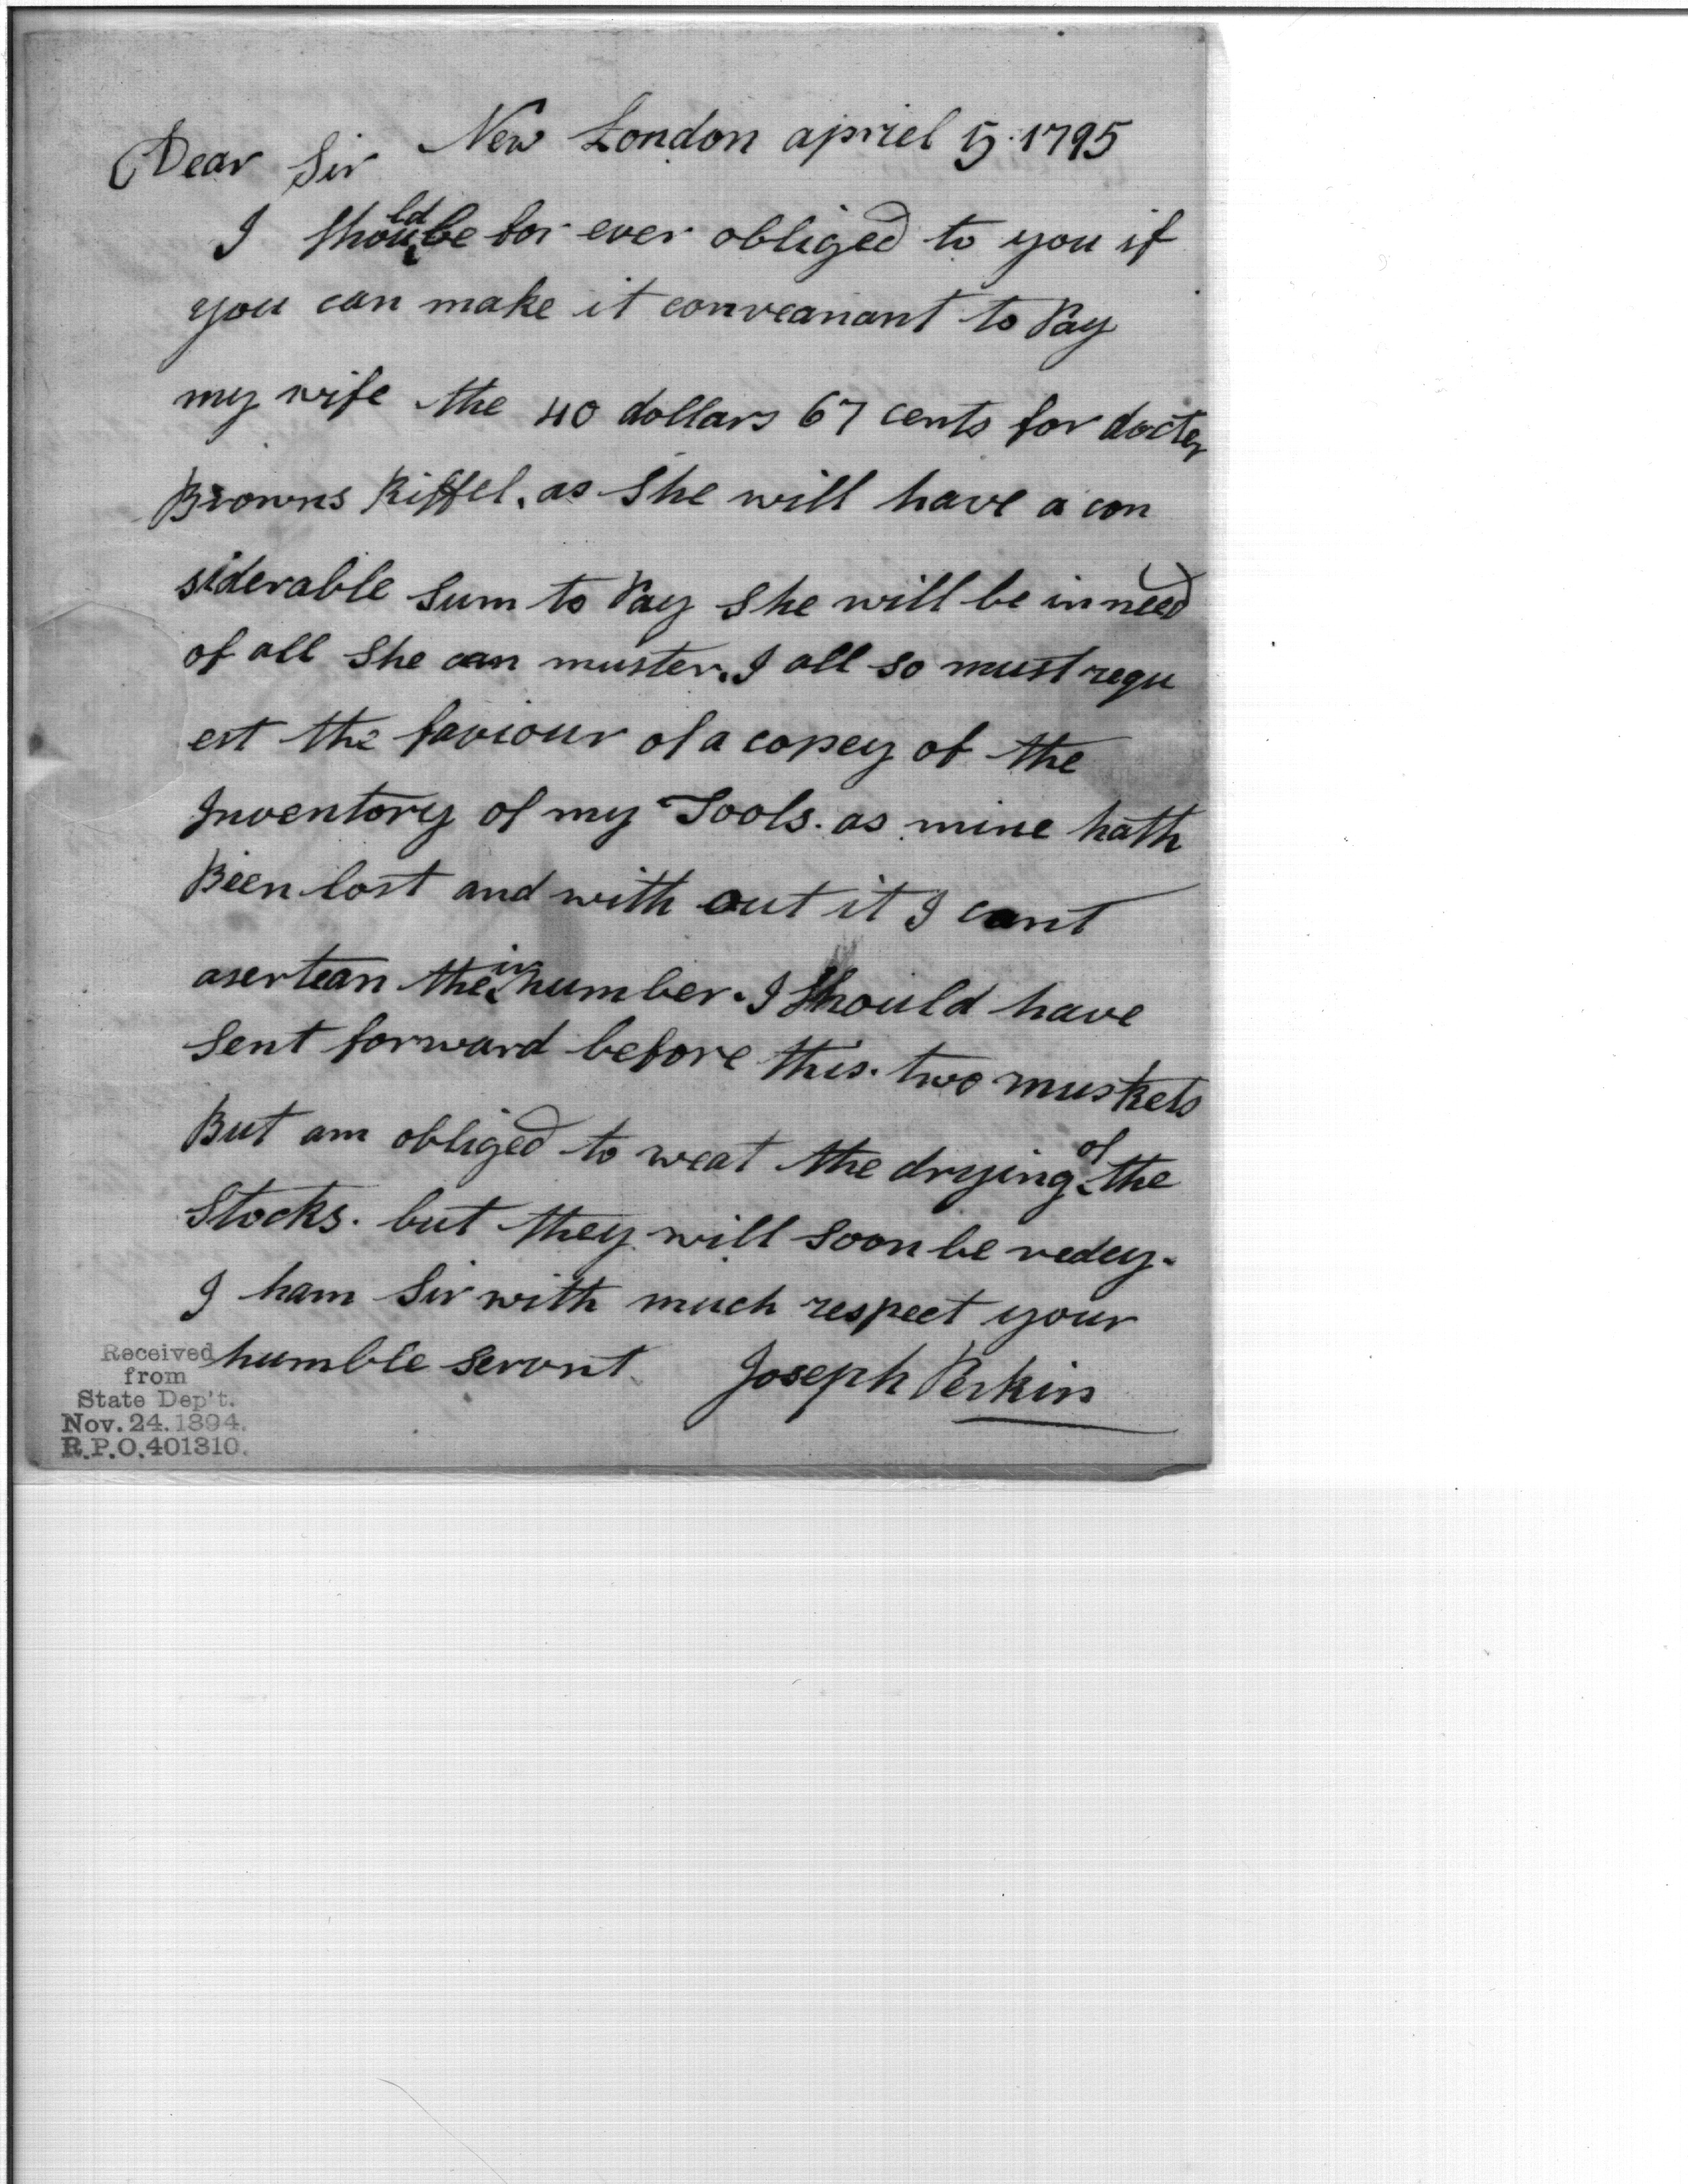 New London apriel 5. 1795
Dear Sir
I should be for ever obliged to you if
you can make it conveanant to Pay
my wife the 40 dollars 67 cents for docter
Browns Riffel. as She will have a con
siderable Sum to Pay She will be in need
of all She can muster. I all so must requ
est the faviour of a copey of the
Inventory of my Tools. as mine hath
Been lost and with out it I cant
asertean their number. I Should have
Sent forward before this. two muskets
But am obliged to weat the drying of the
Stocks. but they will soon be redey.
I ham Sir with much respect your
humble servnt Joseph Perkin
Received
from
State Dep't.
Nov. 24. 1894.
R.P.O. 401310.